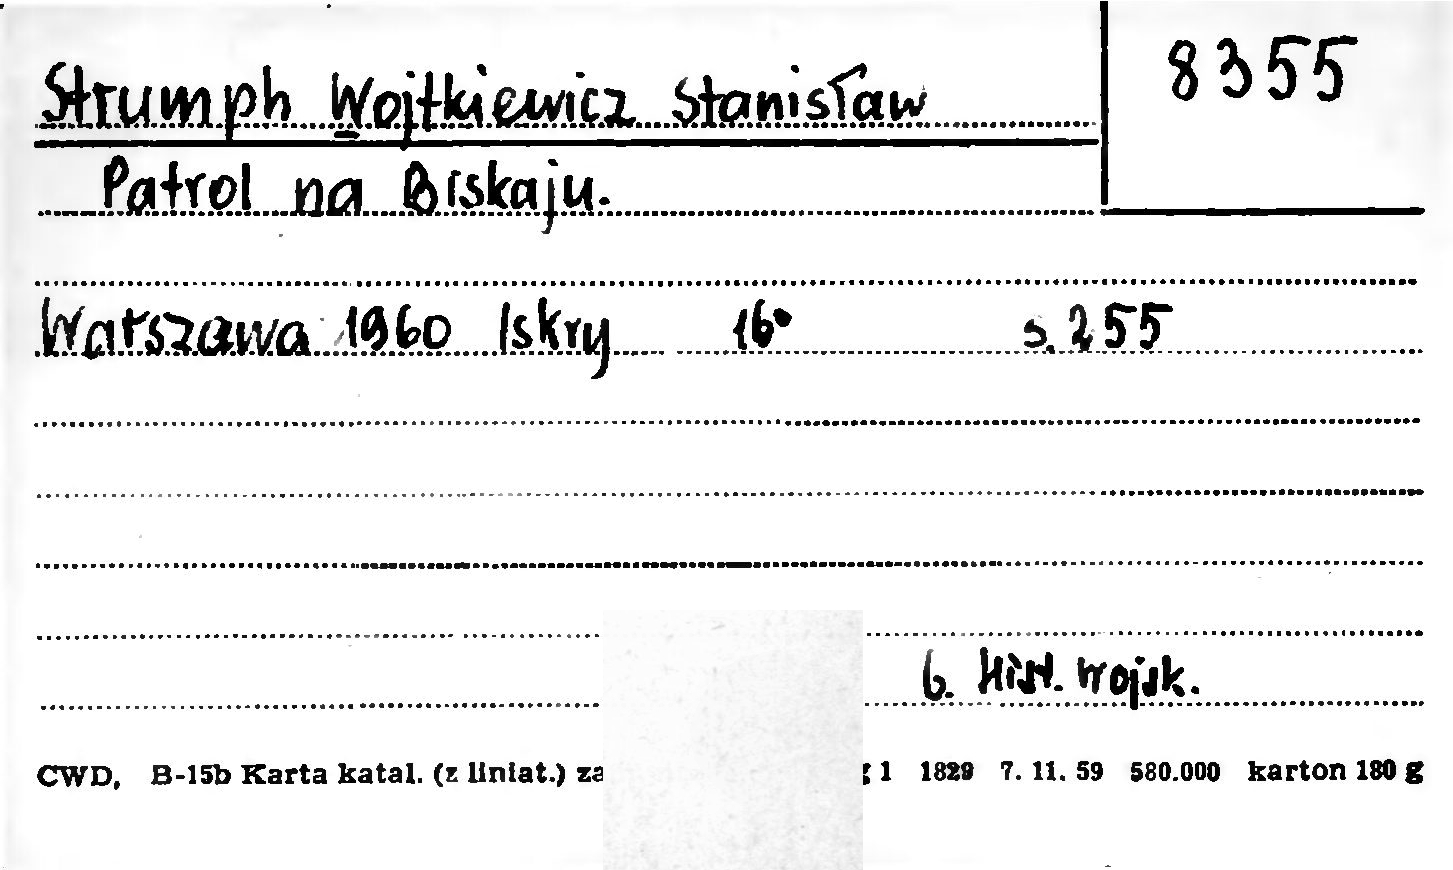 Strumph Wojtkiewicz Stanisław
8355
Patrol na Biskaju.
Warszawa 1960 Iskry 16° s. 255
6. Hist. Wojsk.
CWD, B-15b Karta katal. (z liniat.) za 1 1829 7. 11. 59 580.000 karton 180 g